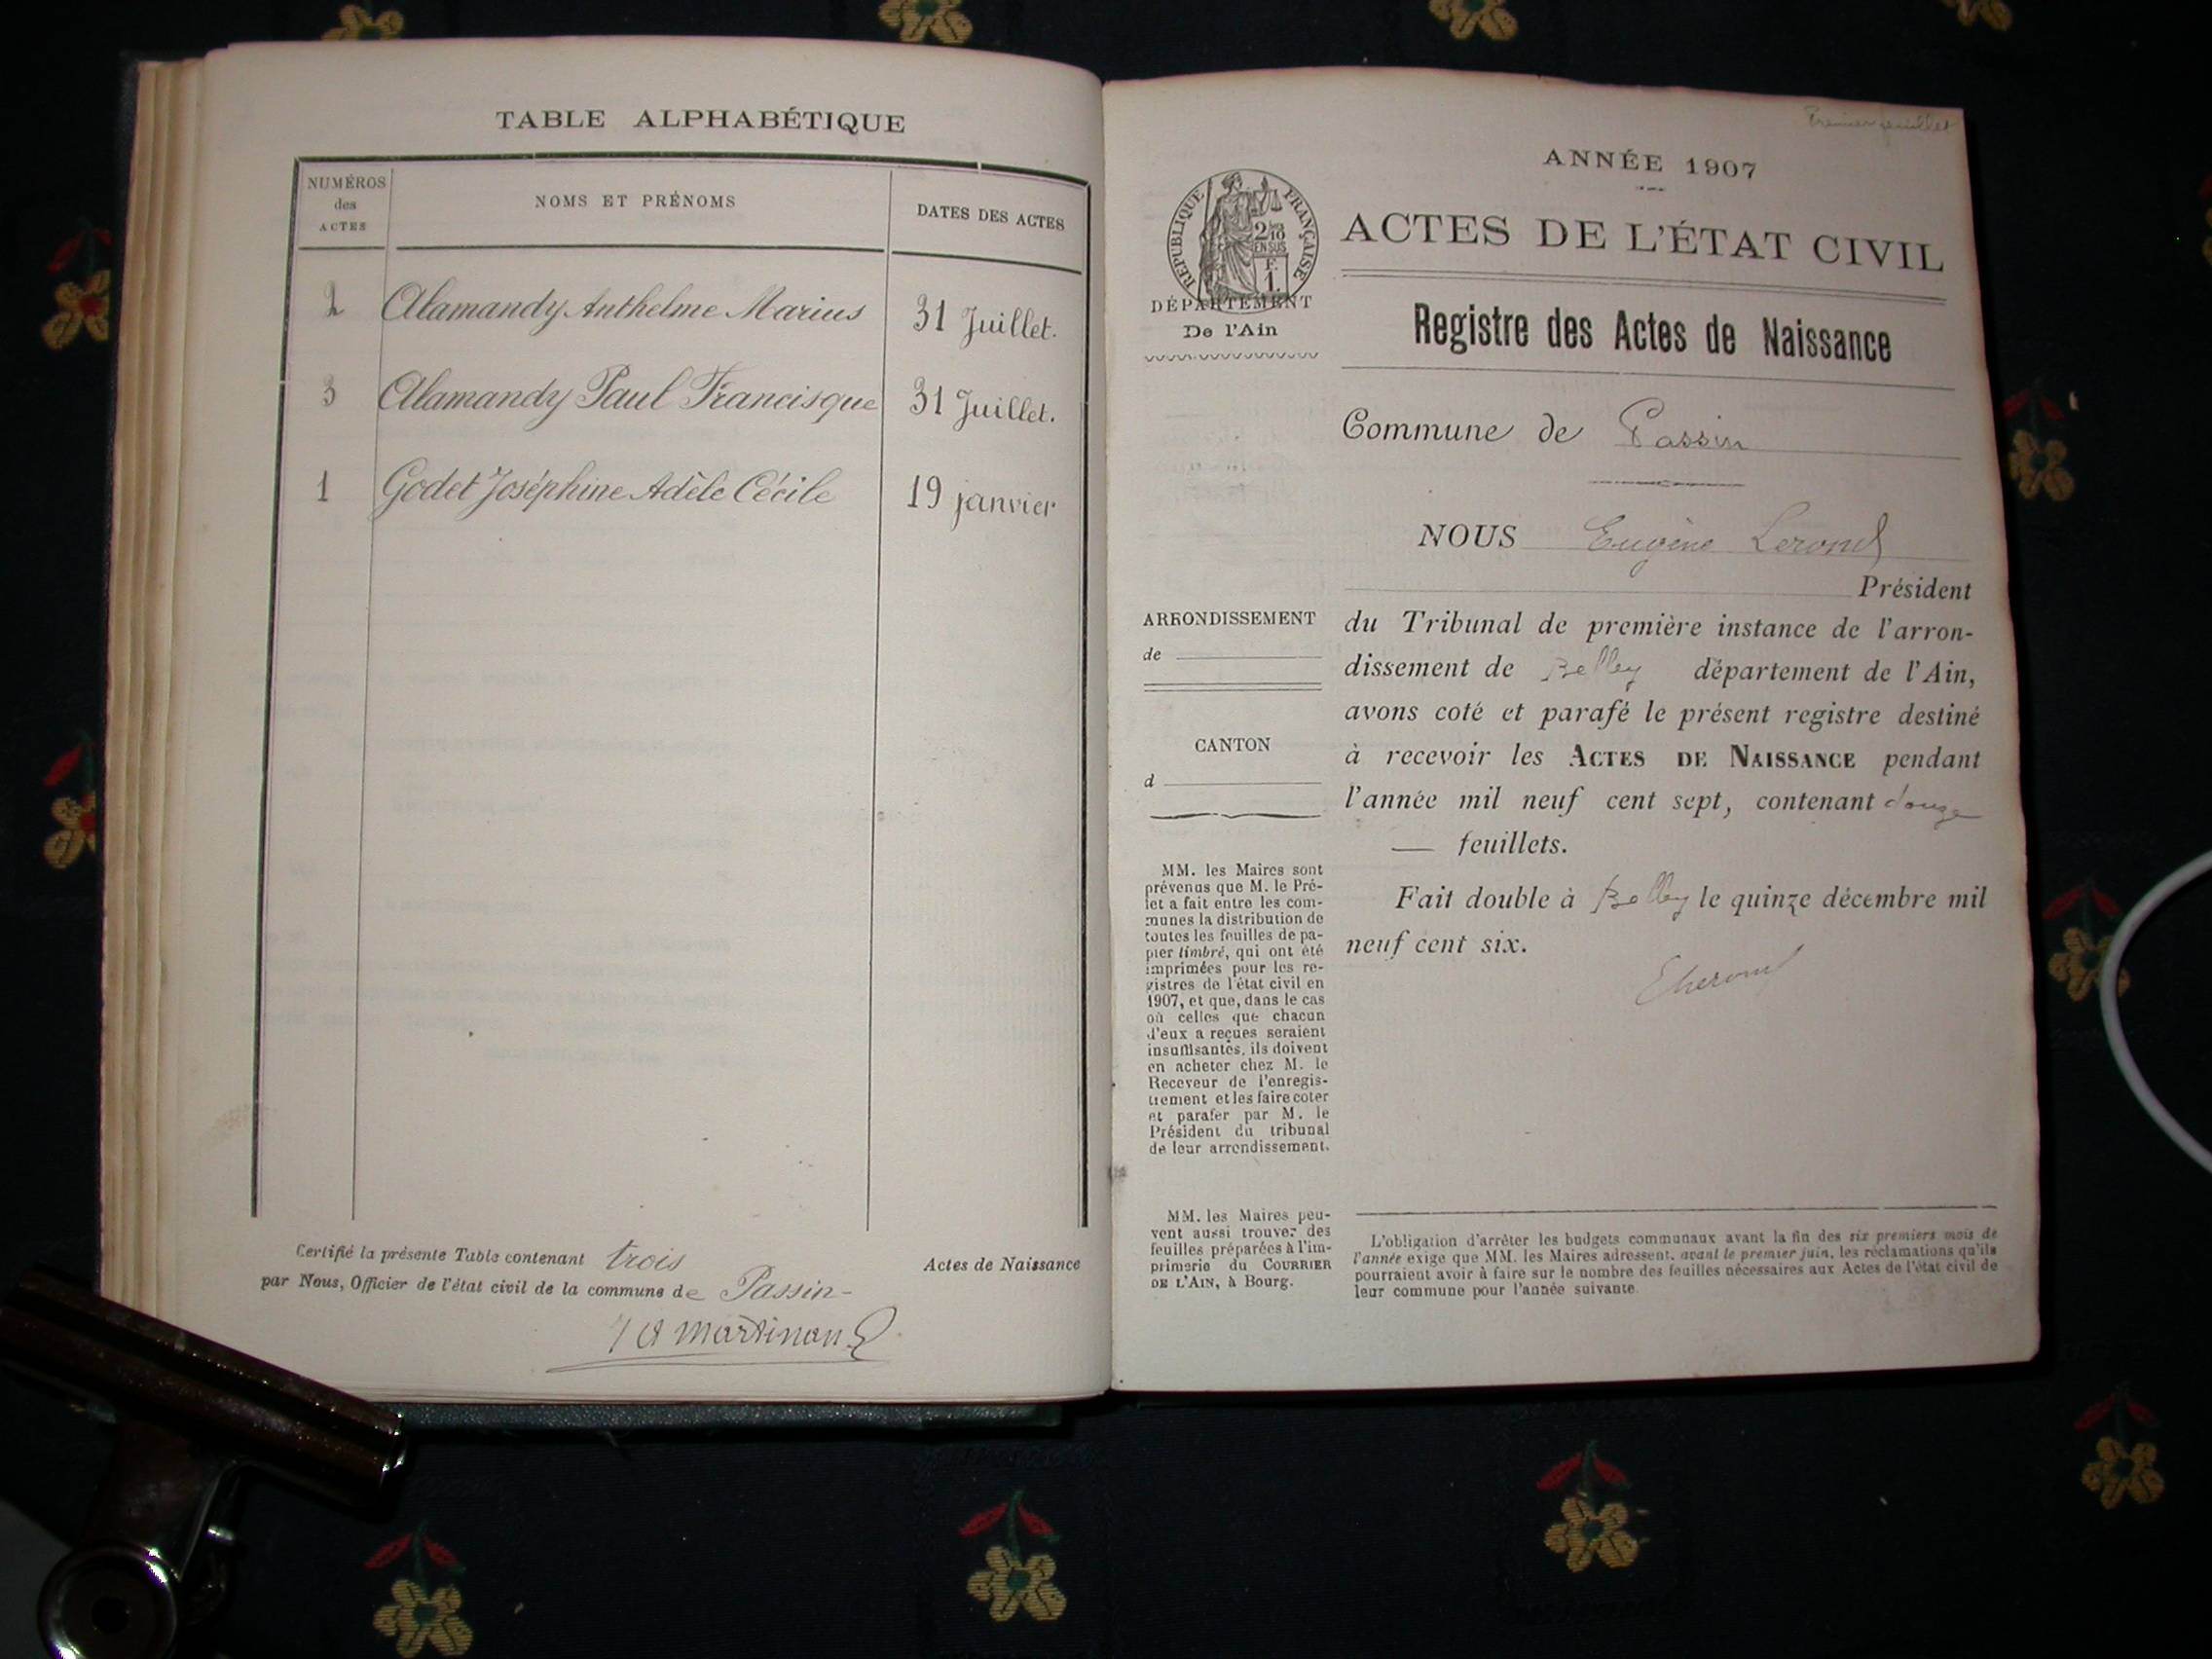 TABLE ALPHABÉTIQUE
NUMÉROS
des
ACTES
NOMS ET PRÉNOMS
DATES DES ACTES
2 Alamandy Anthelme Marius 31 Juillet.
3 Alamandy Paul Francisque 31 Juillet.
1 Godet Joséphine Adèle Cécile 19 janvier
Certifié la présente Table contenant trois Actes de Naissance
par Nous, Officier de l'état civil de la commune de Passin-
martinand
Premier feuillet
ANNÉE 1907
ACTES DE L'ÉTAT CIVIL
RÉPUBLIQUE FRANÇAISE
2/10
EN SUS
F.
1.
DÉPARTEMENT
De l'Ain
Registre des Actes de Naissance
Commune de Passin
NOUS Eugène Lerond
Président
du Tribunal de première instance de l'arron-
dissement de Belley département de l'Ain,
avons coté et parafé le présent registre destiné
à recevoir les ACTES DE NAISSANCE pendant
l'année mil neuf cent sept, contenant douze
— feuillets.
Fait double à Belley le quinze décembre mil
neuf cent six.
ARRONDISSEMENT
de
CANTON
d
MM. les Maires sont
prévenus que M. le Pré-
fet a fait entre les com-
munes la distribution de
toutes les feuilles de pa-
pier timbré, qui ont été
imprimées pour les re-
gistres de l'état civil en
1907, et que, dans le cas
où celles que chacun
d'eux a reçues seraient
insuffisantes, ils doivent
en acheter chez M. le
Receveur de l'enregis-
trement et les faire coter
et parafer par M. le
Président du tribunal
de leur arrondissement.
MM. les Maires peu-
vent aussi trouver des
feuilles préparées à l'im-
primerie du COURRIER
DE L'AIN, à Bourg.
L'obligation d'arrêter les budgets communaux avant la fin des six premiers mois de
l'année exige que MM. les Maires adressent, avant le premier juin, les réclamations qu'ils
pourraient avoir à faire sur le nombre des feuilles nécessaires aux Actes de l'état civil de
leur commune pour l'année suivante.